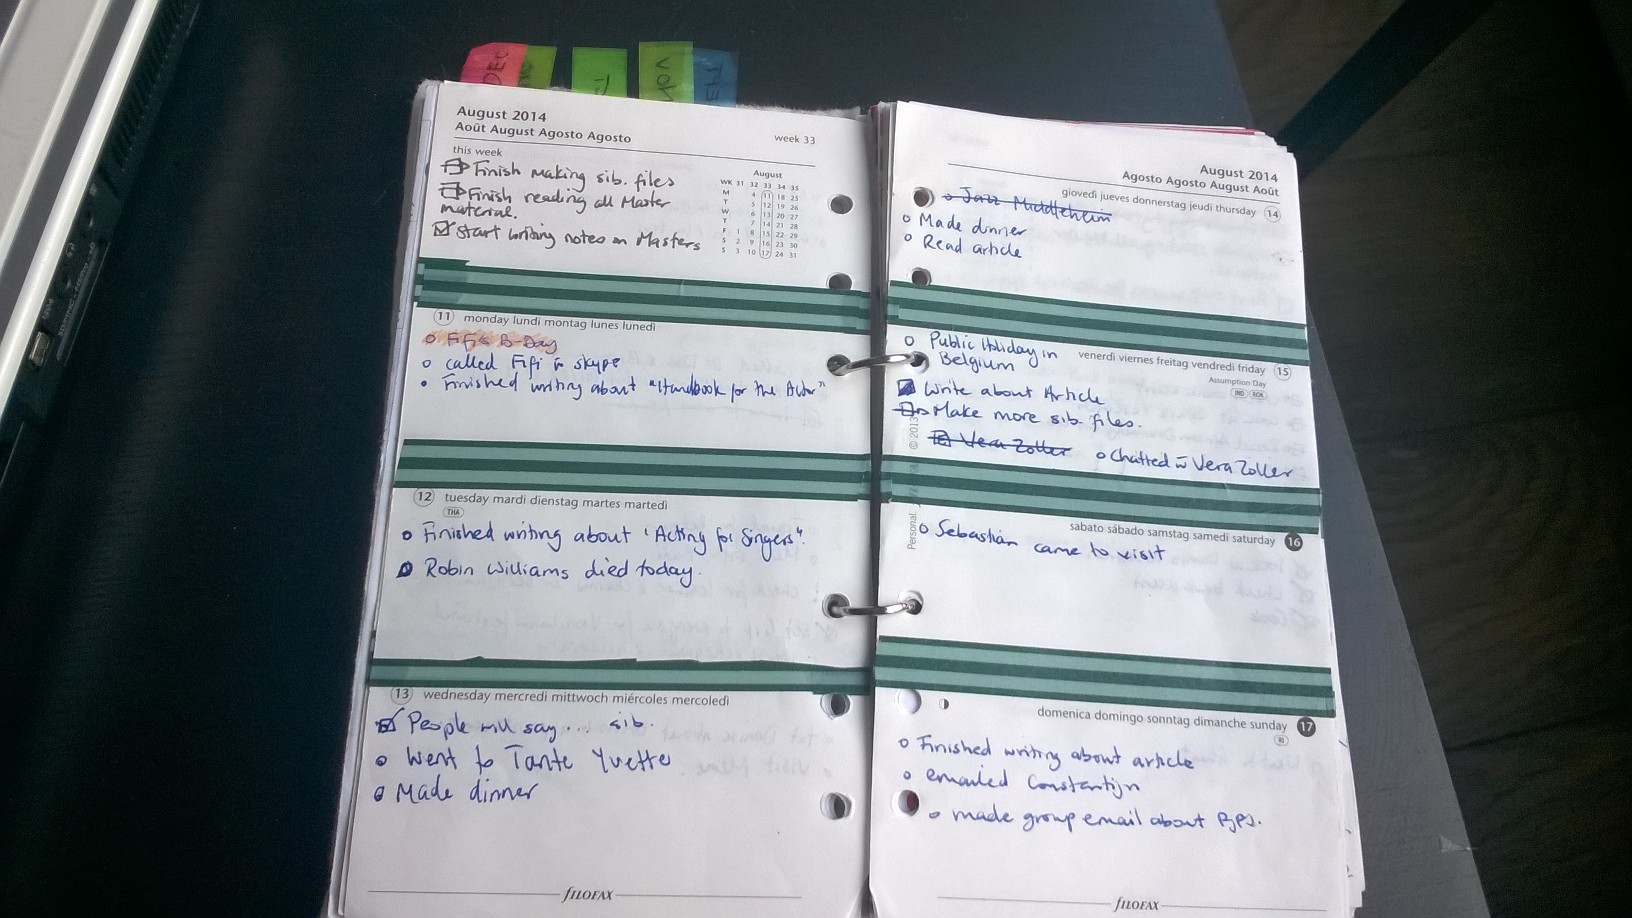 August 2014
Août August Agosto Agosto
week 33
this week
Finish making sib. files
Finish reading all Master
material.
Start writing notes on Masters
August
WK 31 32 33 34 35
M 4 11 18 25
T 5 12 19 26
W 6 13 20 27
T 7 14 21 28
F 1 8 15 22 29
S 2 9 16 23 30
S 3 10 17 24 31
11 monday lundi montag lunes lunedì
Fifi's B-Day
called Fifi skype
Finished writing about "Handbook for the Actor"
12 tuesday mardi dienstag martes martedì
THA
Finished writing about "Acting for Singers".
Robin Williams died today.
13 wednesday mercredi mittwoch miércoles mercoledì
People will say... sib.
Went to Tante Yvette
Made dinner
fILOFAX
August 2014
Agosto Agosto August Août
giovedì jueves donnerstag jeudi thursday 14
Jazz Middelheim
Made dinner
Read article
Public Holiday in
Belgium
venerdì viernes freitag vendredi friday 15
Assumption Day
Write about Article
Make more sib. files.
Vera Zoller
Chatted w Vera Zoller
Personal © 2013
sabato sábado samstag samedi saturday 16
Sebastián came to visit
domenica domingo sonntag dimanche sunday 17
Finished writing about article
emailed Constantijn
made group email about
fILOFAX
DEC
NOV